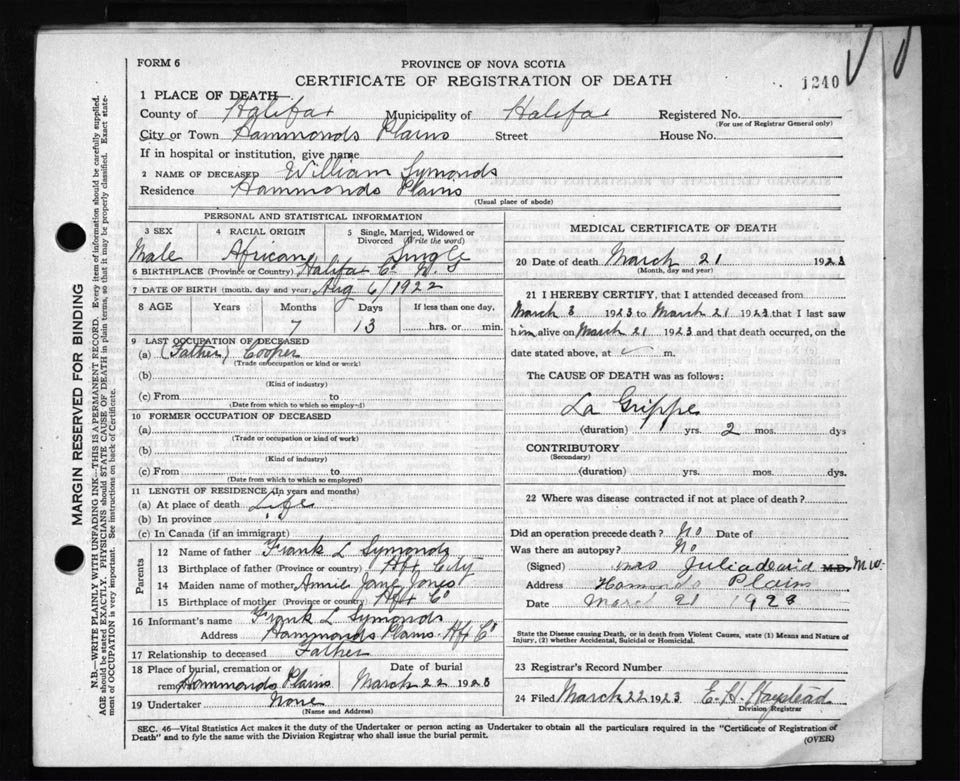 FORM 6
PROVINCE OF NOVA SCOTIA
CERTIFICATE OF REGISTRATION OF DEATH
1240
1 PLACE OF DEATH—
County of Halifax Municipality of Halifax Registered No.
(For use of Registrar General only)
City or Town Hammonds Plains Street House No.
If in hospital or institution, give name
2 NAME OF DECEASED William Symonds
Residence Hammonds Plains
(Usual place of abode)
PERSONAL AND STATISTICAL INFORMATION
3 SEX 4 RACIAL ORIGIN 5 Single, Married, Widowed or
Divorced (Write the word)
Male African Single
6 BIRTHPLACE (Province or Country) Halifax Co N.S
7 DATE OF BIRTH (month, day and year) Aug 6/1922
8 AGE Years Months Days If less than one day,
7 13 hrs. or min.
9 LAST OCCUPATION OF DECEASED
(a) (Father) Cooper
(Trade or occupation or kind or work)
(b)
(Kind of industry)
(c) From to
(Date from which to which so employed)
10 FORMER OCCUPATION OF DECEASED
(a)
(Trade or occupation or kind of work)
(b)
(Kind of industry)
(c) From to
(Date from which to which so employed)
11 LENGTH OF RESIDENCE (In years and months)
(a) At place of death Life
(b) In province
(c) In Canada (if an immigrant)
Parents
12 Name of father Frank L Symonds
13 Birthplace of father (Province or country) Hfx City
14 Maiden name of mother Annie Jane Jones
15 Birthplace of mother (Province or Country) Hfx Co
16 Informant's name Frank L Symonds
Address Hammonds Plains Hfx Co
17 Relationship to deceased Father
18 Place of burial, cremation or Date of burial
Hammonds Plains March 22 1923
19 Undertaker None
(Name and Address)
MEDICAL CERTIFICATE OF DEATH
20 Date of death March 21 1923
(Month, day and year)
21 I HEREBY CERTIFY, that I attended deceased from
March 3 1923 to March 21 1923 that I last saw
him alive on March 21 1923 and that death occurred, on the
date stated above, at m.
The CAUSE OF DEATH was as follows:
La Grippe
(duration) yrs. 2 mos. dys
CONTRIBUTORY
(Secondary)
(duration) yrs. mos. dys.
22 Where was disease contracted if not at place of death?
Did an operation precede death? No Date of
Was there an autopsy? No
(Signed) Mrs M.D. M W.
Address Hamonds Plains
Date March 21 1923
State the Disease causing Death, or in death from Violent Causes, state (1) Means and Nature of
Injury, (2) whether Accidental, Suicidal or Homicidal.
23 Registrar's Record Number
24 Filed March 22 1923 E. H.
Division Registrar
SEC. 46—Vital Statistics Act makes it the duty of the Undertaker or person acting as Undertaker to obtain all the particulars required in the "Certificate of Registration of
Death" and to fyle the same with the Division Registrar who shall issue the burial permit.
(OVER)
MARGIN RESERVED FOR BINDING
N.B.—WRITE PLAINLY WITH UNFADING INK—THIS IS A PERMANENT RECORD. Every item of information should be carefully supplied.
AGE should be stated EXACTLY. PHYSICIANS should STATE CAUSE OF DEATH in plain terms, so that it may be properly classified. Exact state-
ment of OCCUPATION is very important. See instructions on back of Certificate.